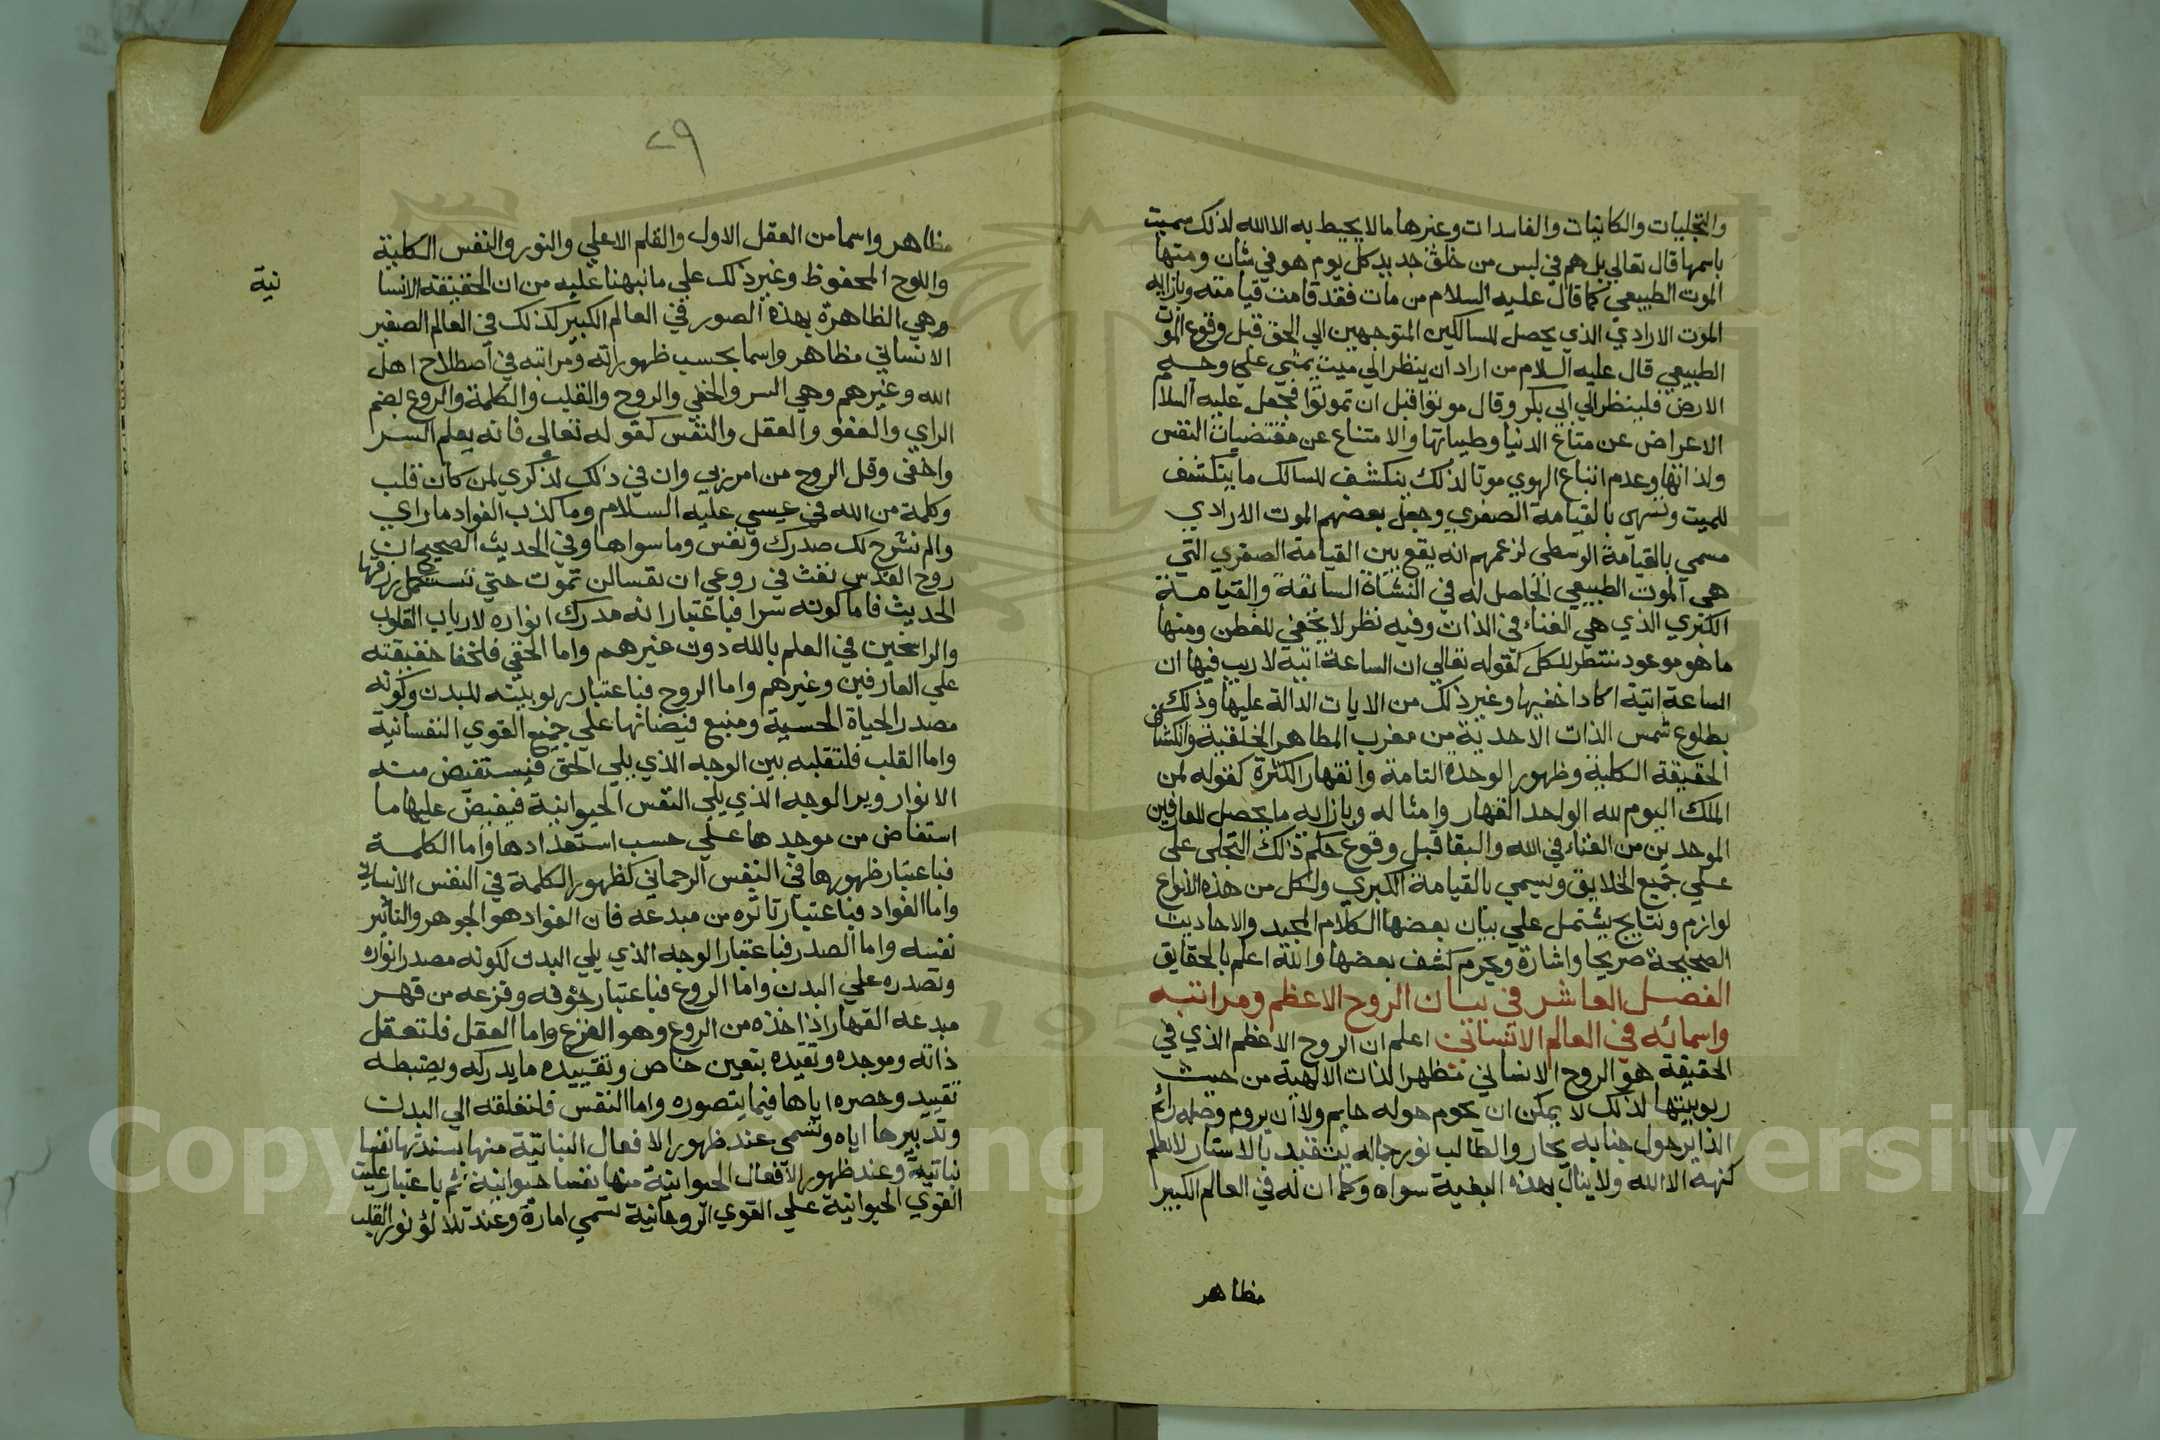 والتجليات والكائنات والفاسدات وغيرها مالا يحيط به الا الله لذلك سميت
باسمها قال تعالي بل هم في لبس من خلق جديد كل يوم هو في شان ومنها
الموت الطبيعي كما قال عليه السلام من مات فقد قامت قيامته وبازايه
الموت الارادي الذي يحصل للسالكين المتوجهين الي الحق قبل وقوع الموت
الطبيعي قال عليه السلام من اراد ان ينظر الي ميت يمشي علي وجه
الارض فلينظر الي ابي بكر وقال موتوا قبل ان تموتوا فجعل عليه السلام
الاعراض عن متاع الدنيا وطيباتها والامتناع عن مقتضيات النفس
ولذاتها وعدم اتباع الهوي موتا لذلك ينكشف للسالك ما ينكشف
للميت وتسمي بالقيامة الصغري وجعل بعضهم الموت الارادي
مسمي بالقيامة الوسطي لزعمهم انه يقع بين القيامة الصغري التي
هي الموت الطبيعي الحاصل له في النشاة السابقة والقيامة
الكبري الذي هي الفناء في الذات وفيه نظر لا يخفي للفطن ومنها
ما هو موعود منتظر للكل كقوله تعالي ان الساعة اتية لا ريب فيها ان
الساعة اتية اكاد اخفيها وغير ذلك من الايات الدالة عليها وذلك
بطلوع شمس الذات الاحدية من مغرب المظاهر الخلقية وانكشاف
الحقيقة الكلية وظهور الوحدة التامة وانقهار الكثرة كقوله لمن
الملك اليوم لله الواحد القهار وامثاله وبازايه ما يحصل للعارفين
الموحدين من الفناء في الله والبقا قبل وقوع حكم ذلك التجلي علي
علي جميع الخلايق ويسمي بالقيامة الكبري ولكل من هذه الانواع
لوازم ونتايج يشتمل علي بيان بعضها الكلام المجيد والاحاديث
الصحيحة صريحا واشارة ويحرم كشف بعضها والله اعلم بالحقايق
الفصل العاشر في بيان الروح الاعظم ومراتبه
واسمائه في العالم الانساني اعلم ان الروح الاعظم الذي في
الحقيقة هو الروح الانساني مظهر الذات الالهية من حيث
ربوبيتها لذلك لا يمكن ان يحوم حوله حايم ولا ان يروم وصله رائم
الداير حول جنابه يحار والطالب نور جماله يتقيد بالاستار لا يعلم
كنهه الا الله ولا ينال بهذه البغية سواه وكما ان له في العالم الكبير
مظاهر
٢٩
مظاهر واسما من العقل الاول والقلم الاعلي والنور والنفس الكلية
واللوح المحفوظ وغير ذلك علي ما نبهنا عليه من ان الحقيقة الانسا
نية
وهي الظاهرة بهذه الصور في العالم الكبير كذلك في العالم الصغير
الانساني مظاهر واسما بحسب ظهوراته ومراتبه في اصطلاح اهل
الله وغيرهم وهي السر والخفي والروح والقلب والكلمة والروع بضم
الراي والعقل والنفس كقوله تعالي فانه يعلم السر
واخفي وقل الروح من امر ربي وان في ذلك لذكري لمن كان قلب
وكلمة من الله في عيسي عليه السلام وما كذب الفواد ما راي
والم نشرح لك صدرك ونفس وما سواها وفي الحديث الصحيح ان
روح القدس نفث في روعي ان نفسا لن تموت حتي تستكمل رزقها
الحديث فاما كونه سرا فباعتبار انه مدرك انواره لارباب القلوب
والراسخين في العلم بالله دون غيرهم واما الخفي فلخفا حقيقته
علي العارفين وغيرهم واما الروح فباعتبار ربوبيته للبدن وكونه
مصدر الحياة الحسية ومنبع فيضانها علي جميع القوي النفسانية
واما القلب فلتقلبه بين الوجه الذي يلي الحق فيستفيض منه
الانوار وير الوجه الذي يلي النفس الحيوانية فيفيض عليها ما
استفاض من موجدها علي حسب استعدادها واما الكلمة
فباعتبار ظهورها في النفس الرحماني كظهور الكلمة في النفس الانساني
واما الفواد فباعتبار تاثره من مبدعه فان الفواد هو الجوهر والتاثير
نفسه واما الصدر فباعتبار الوجه الذي يلي البدن لكونه مصدر انواره
وتصدره علي البدن واما الروع فباعتبار خوفه وفزعه من قهر
مبدعه القهار اذا خذه من الروع وهو الفزع واما العقل فلتعقل
ذاته وموجده وتقيده بتعين خاص وتقييده ما يدركه ويضبطه
تقييد وحصره اياها فيما يتصوره واما النفس فلتعلقه الي البدن
وتدبيرها اياه وتسمي عند ظهور الافعال النباتية منها بسندتها نفسا
نباتية وعند ظهور الافعال الحيوانية منها نفسا حيوانية ثم باعتبار غلبة
القوي الحيوانية علي القوي الروحانية تسمي امارة وعند تلالؤ نور القلب